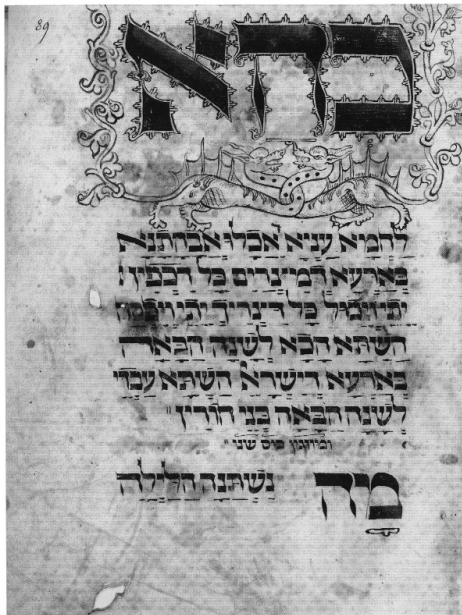 89
כהא
לחמא עניא אכלו אבהתנא
בארעא דמיצרים כל דכפין
יתי ויכול כל דיצריך יתי ויפסח
השתא הכא לשנה הבאה
בארעא דישרא' השתא עבדי
לשנה הבאה בני חורין
ומוזגין כוס שני
מה נשתנה הלילה